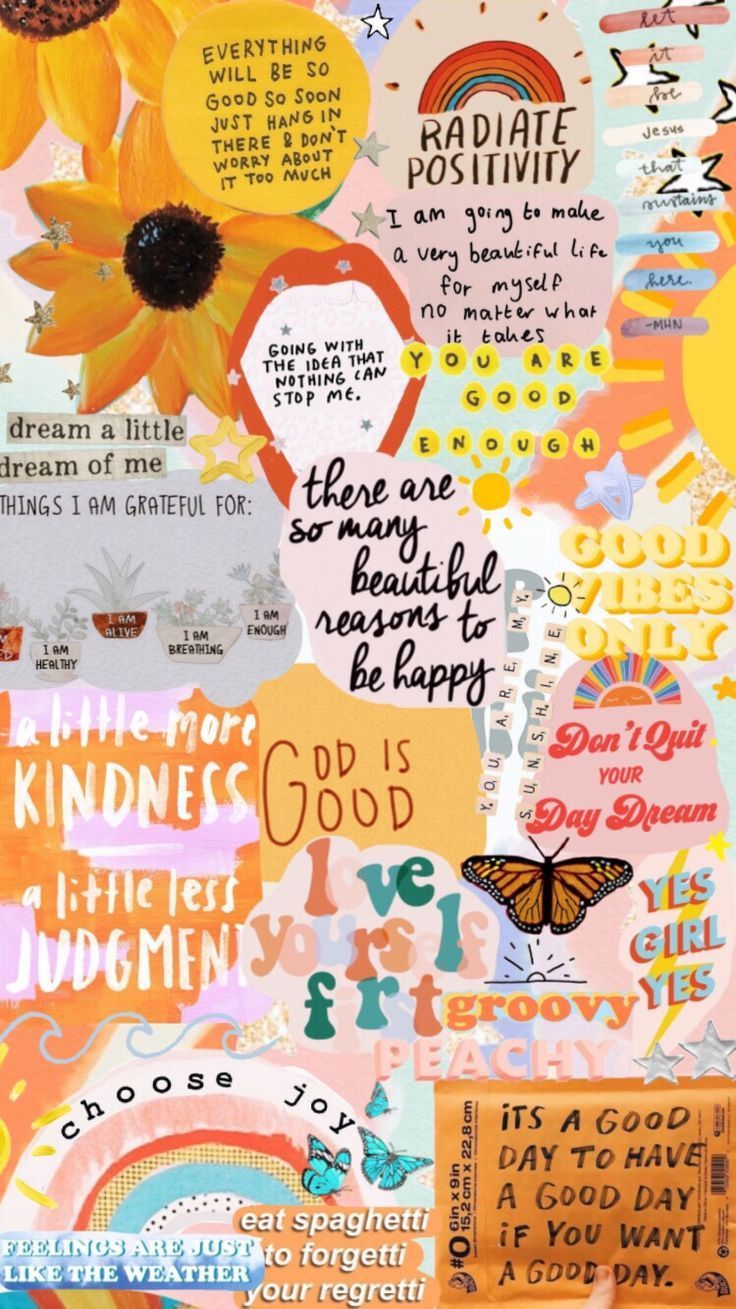 EVERYTHING
WILL BE SO
GOOD SO SOON
JUST HANG IN
THERE & DON'T
WORRY ABOUT
IT TOO MUCH
RADIATE
POSITIVITY
let
it
be
Jesus
that
sustains
you
here.
-MHN
I am going to make
a very beautiful life
for myself
no matter what
it takes
GOING WITH
THE IDEA THAT
NOTHING CAN
STOP ME.
YOU ARE
GOOD
ENOUGH
dream a little
dream of me
THINGS I AM GRATEFUL FOR:
I AM
HEALTHY
I AM
ALIVE
I AM
BREATHING
I AM
ENOUGH
there are
so many
beautiful
reasons to
be happy
YOU ARE MY
SUNSHINE
GOOD
VIBES
ONLY
Don't Quit
YOUR
Day Dream
a little more
KINDNESS
a little less
JUDGMENT
GOD IS
GOOD
love
yourself
firt
YES
GIRL
YES
groovy
PEACHY
choose joy
FEELINGS ARE JUST
LIKE THE WEATHER
eat spaghetti
to forgetti
your regretti
#0 6in x 9in
15,2 cm x 22,8 cm
iTS A GOOD
DAY TO HAVE
A GOOD DAY
iF YOU WANT
A GOOD DAY.